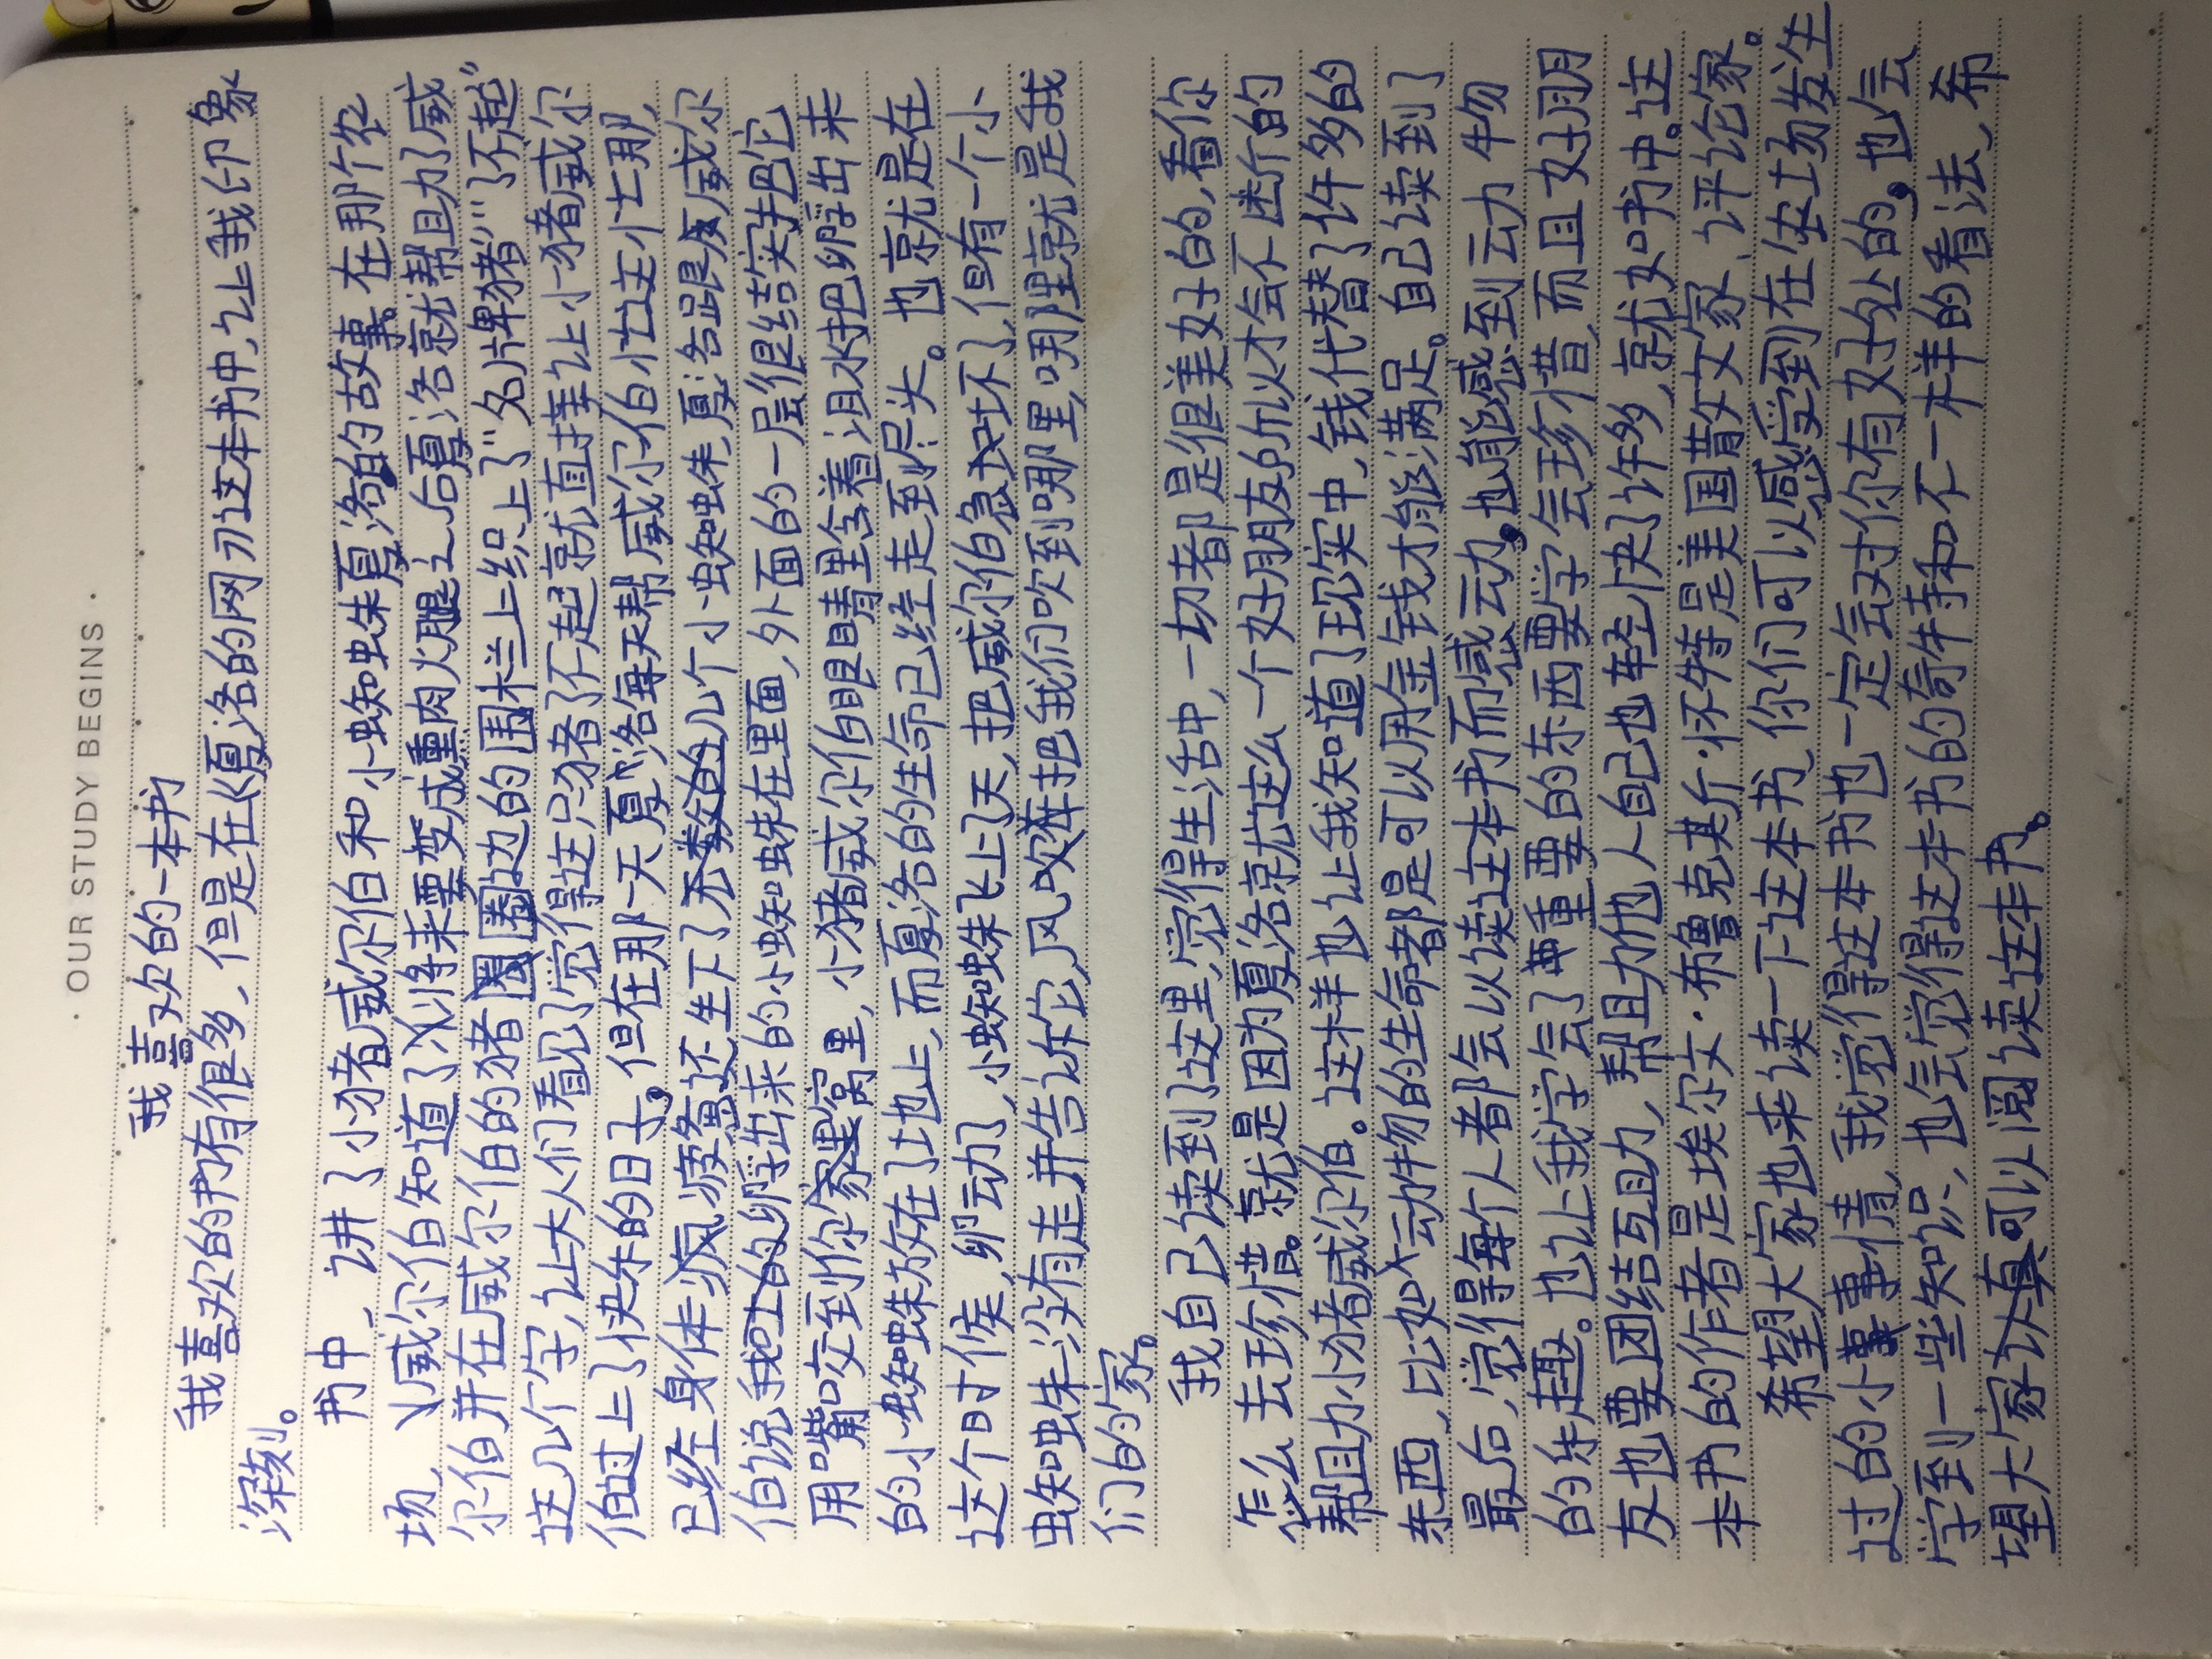 · OUR STUDY BEGINS ·
我喜欢的一本书
我喜欢的书有很多，但是在《夏洛的网》这本书中，让我印象
深刻。
书中，讲了小猪威尔伯和小蜘蛛夏洛的故事。在那个农
场，威尔伯知道了将来要变成熏肉火腿之后夏洛就帮助了威
尔伯并在威尔伯的猪圈边的围栏上织上了“名牌猪”“了不起”
这几个字，让大人们看见了觉得这只猪了不起就直接让小猪威尔
伯过上了快乐的日子。但在那一天夏洛每天帮威尔伯忙这忙那，
已经身体疲惫还生下了无数的小蜘蛛夏洛跟威尔
伯说我的卵孵出来的小蜘蛛在里面，外面的一层很结实把它
用嘴咬到你窝里，小猪威尔伯眼睛里含着泪水把卵孵出来
的小蜘蛛放在了地上，而夏洛的生命已经走到尽头。也就是在
这个时侯，卵动了，小蜘蛛飞上了天，把威尔伯急坏了，但有一个小
蜘蛛没有走并告诉它，风吹把我们吹到哪里，哪里就是我
们的家。
我自己读到了这里，觉得生活中，一切都是很美好的，看你
怎么去珍惜。就是因为夏洛就这么一个好朋友所以才会不断的
帮助小猪威尔伯。这样也让我知道了现实中，钱代替了许多的
东西，比如动物的生命都是可以用金钱才能满足。自己读到了
最后，觉得每个人都会以读这本书而感动。也能感到动物
的乐趣。也让我学会了重要的东西要学会珍惜，而且好朋
友也要团结互助，帮助他人自己也轻快了许多，就如书中。这
本书的作者是埃尔文·布鲁克斯·怀特是美国散文家、评论家。
希望大家也来读一下这本书，你们可以感受到在农场发生
过的小事情，我觉得这本书也一定会对你有好处的。也会
学到一些知识，也会觉得这本书的奇特和不一样的看法，希
望大家认真可以阅读这本书。